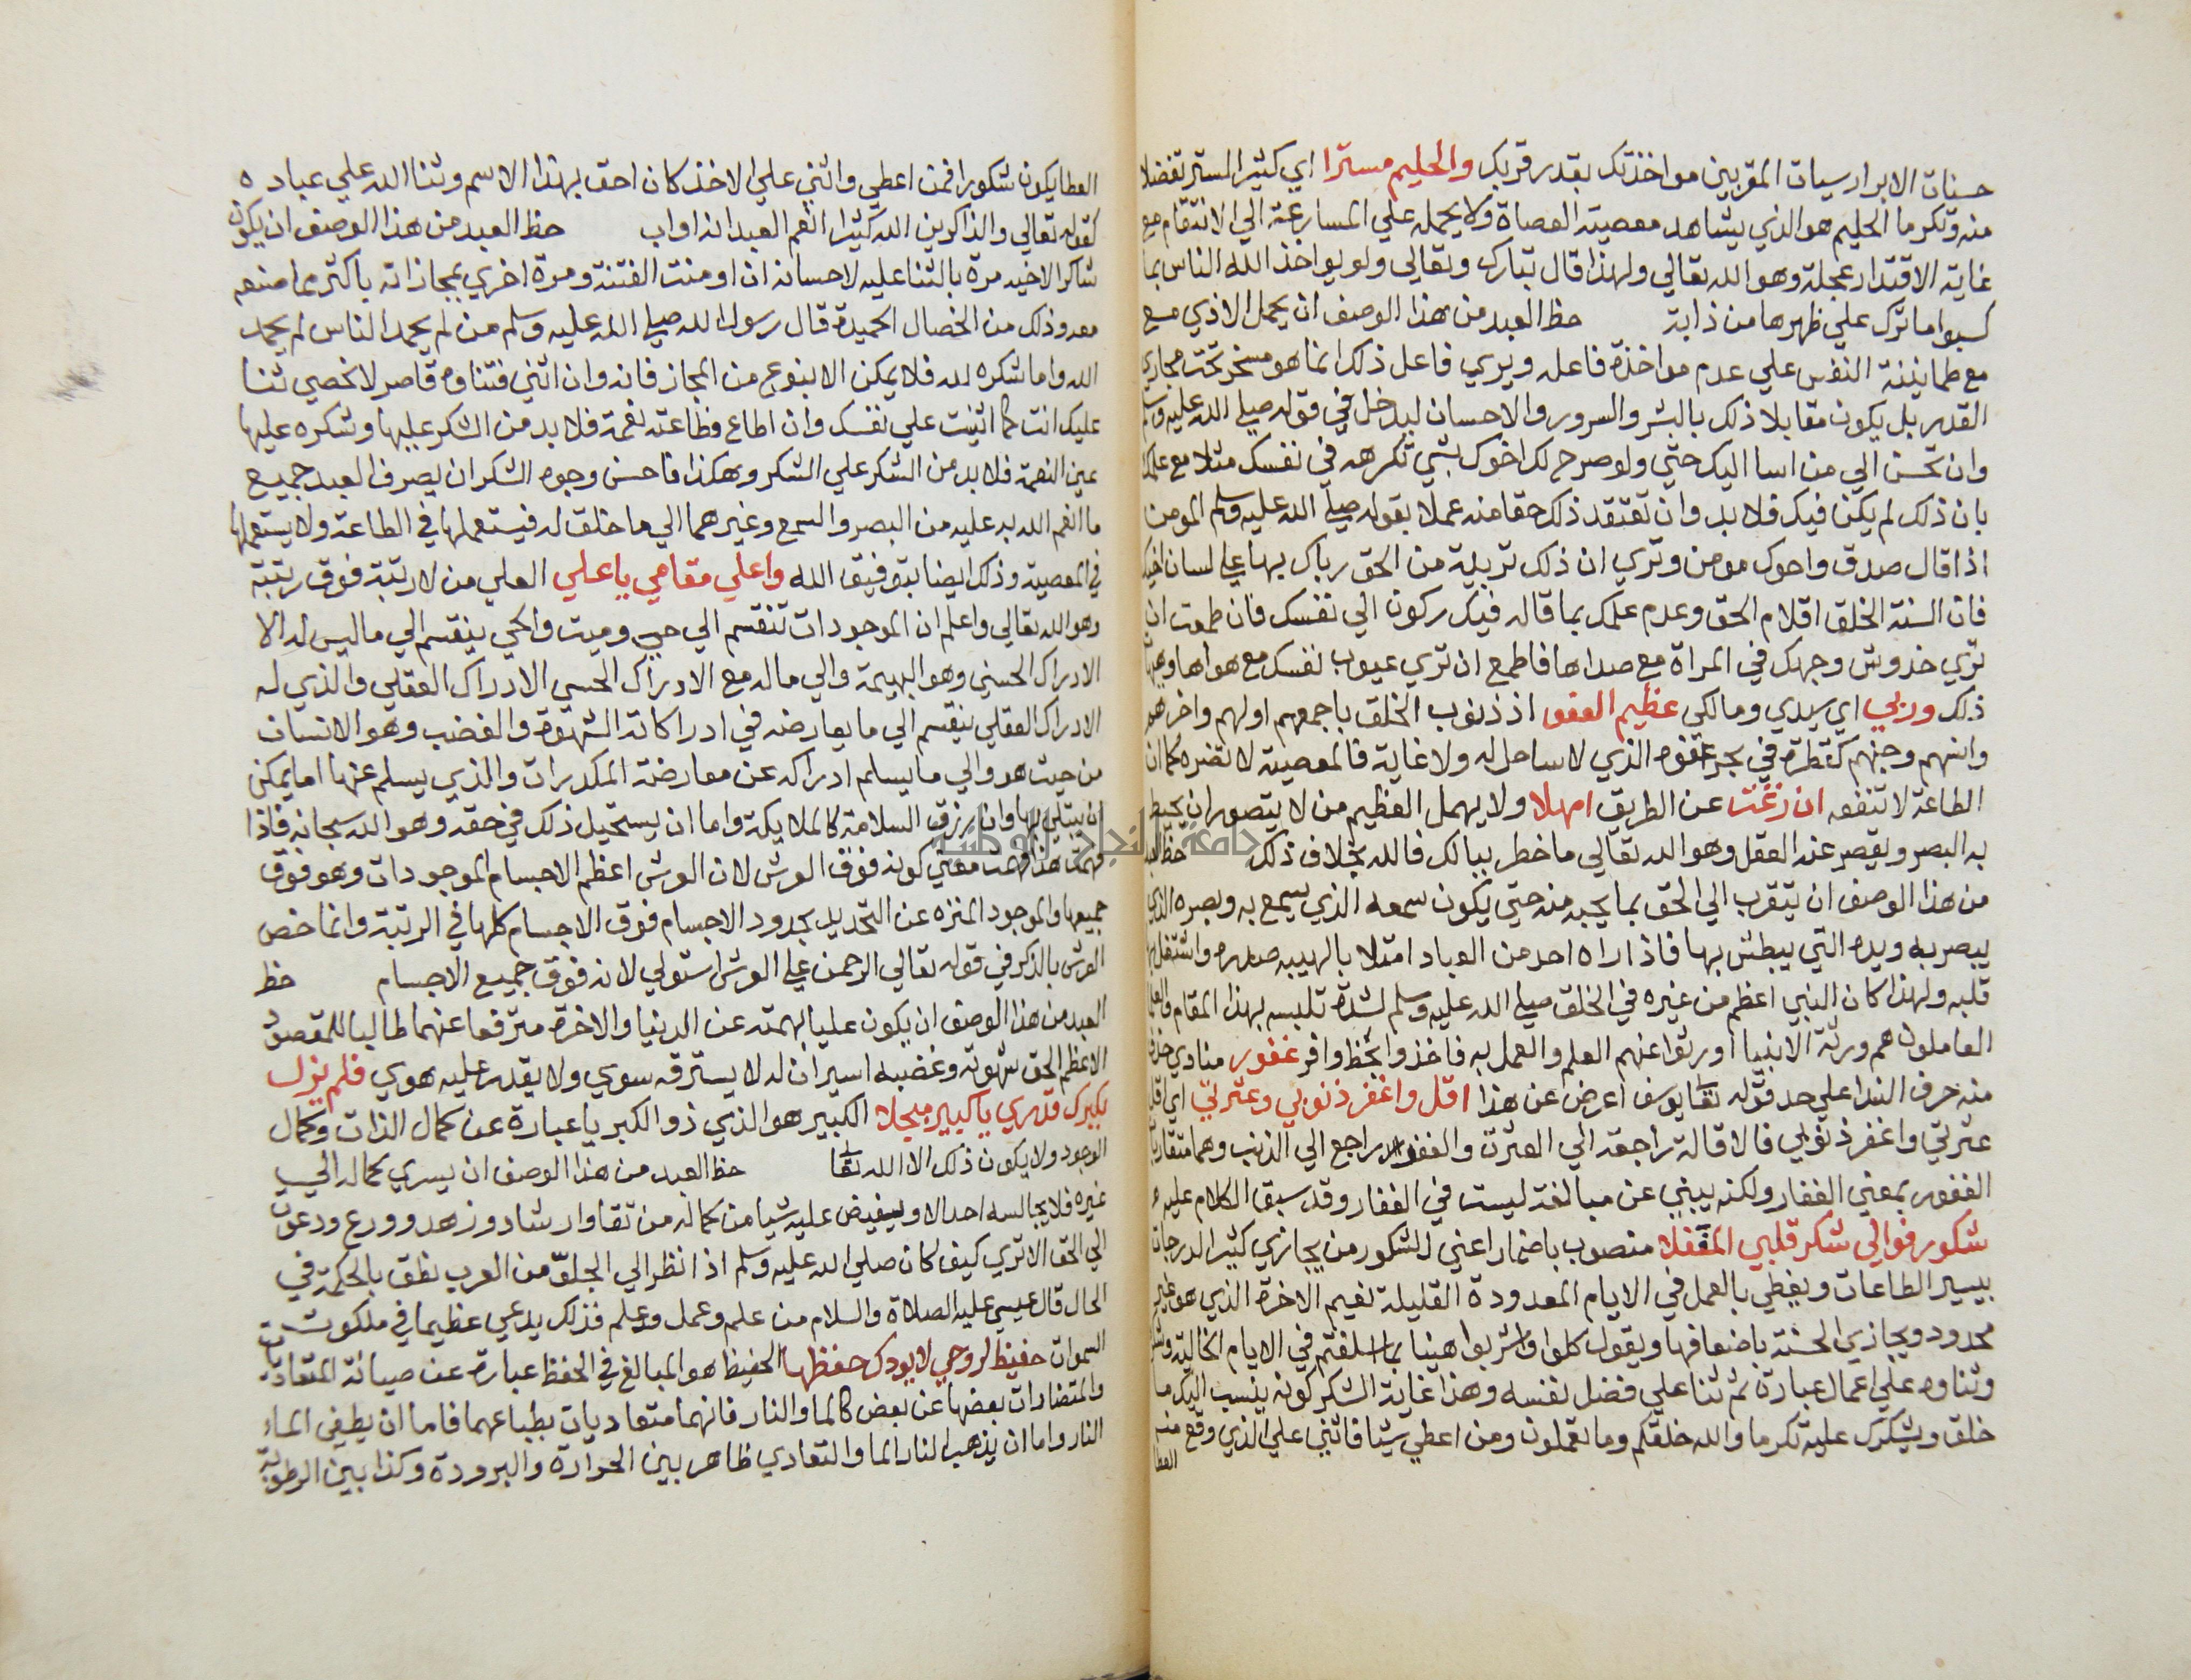 حسنات الابرار سيات المقربين مواخذتك بقدر قربك والحليم مسترا اي كثير الستر تفضلا
منه وتكرما الحليم هو الذي يشاهد معصية العصاة ولا يحمله علي المسارعة الي الانتقام مع
غاية الاقتدار عجلة وهو الله تعالي ولهذا قال تبارك وتعالي ولو يواخذ الله الناس بما
كسبوا ما ترك علي ظهرها من دابة حظ العبد من هذا الوصف ان يحمل الاذي مع
مع طماينة النفس علي عدم مواخذة فاعله ويري فاعل ذلك انما هو مسخر تحت مجاري
القدر بل يكون مقابلا ذلك بالبشر والسرور والاحسان ليدخل في قوله صلي الله عليه وسلم
وان تحسن الي من اسا اليك حتي ولو صرح لك اخوك بشي تكرهه في نفسك مثلا مع علمك
بان ذلك لم يكن فيك فلا بد وان تعتقد ذلك حقا منه عملا بقوله صلي الله عليه وسلم المومن
اذا قال صدق واخوك مومن وتري ان ذلك تربية من الحق رباك بها علي لسان اخيك
فان السنة الخلق اقلام الحق وعدم علمك بما قاله فيك ركون الي نفسك فان طمعت ان
تري خدوش وجهك في المراة مع صداها فاطمع ان تري عيوب نفسك مع هواها
ذلك وربي اي سيدي ومالكي عظيم العفو اذ ذنوب الخلق باجمعهم اولهم واخرهم
وانسهم وجنهم كقطرة في بحر عفوه الذي لا ساحل له ولا غاية فالمعصية لا تضره كما ان
الطاعة لا تنفعه ان زغت عن الطريق امهلا ولا يهمل العظيم من لا يتصور ان يحيط
به البصر ويقصر عنه العقل وهو الله تعالي ما خطر ببالك فالله بخلاف ذلك حظ العبد
من هذا الوصف ان يتقرب الي الحق بما يحبه منه حتي يكون سمعه الذي يسمع به وبصره الذي
يبصر به ويده التي يبطش بها فاذا راه احد من العباد امتلا بالهيبه صدره واشتغل
قلبه ولهذا كان النبي اعظم من غيره في الخلق صلي الله عليه وسلم لشدة تلبسه بهذا المقام
العاملون هم ورثة الانبيا اورثوا عنهم العلم والعمل به فاخذوا بحظ وافر غفور منادي حذف
منه حرف الندا علي حد قوله تعا يوسف اعرض عن هذا اقل واغفر ذنوبي وعثرتي اي اقل
عثرتي واغفر ذنوبي فالاقالة راجعة الي العثرة والغفور راجع الي الذنب وهما متقاربان
الغفور بمعني الغفار ولكنه يبني عن مبالغة ليست في الغفار وقد سبق الكلام عليه
شكور فوالي شكر قلبي المقفلا منصوب باضمار اعني الشكور من يجازي كثير الدرجات
بيسير الطاعات ويعطي بالعمل في الايام المعدودة القليلة نعيم الاخرة الذي هو غير
محدود ويجازي الحسنة باضعافها ويقول كلوا واشربوا هنيا بما اسلفتم في الايام الخالية
وثناوه علي اعمال عباده ثم ثنا علي فضل نفسه وهذا غاية الشكر كونه ينسب اليك ما
خلق ويشكرك عليه تكرما والله خلقكم وما تعملون ومن اعطي شيا فاثني علي الذي وقع منه
العطا
العطا يكون شكورا فمن اعطي واثني علي الاخذ كان احق بهذا الاسم وثنا الله علي عباده
كقوله تعالي والذاكرين الله كثيرا نعم العبد انه اواب حظ العبد من هذا الوصف ان يكون
شاكرا لاخيه مرة بالثنا عليه لاحسانه ان اومنت الفتنة ومرة اخري بمجازاته باكثر مما صنعه
معه وذلك من الخصال الحميدة قال رسول الله صلي الله عليه وسلم من لم يحمد الناس لم يحمد
الله واما شكره لله فلا يمكن الا بنوع من المجاز فانه وان اثني فثناوه قاصر لا نحصي ثنا
عليك انت كما اثنيت علي نفسك وان اطاع فطاعته نعمة فلا بد من الشكر عليها وشكره عليها
عين النعمة فلا بد من الشكر علي الشكر وهكذا فاحسن وجوه الشكر ان يصرف العبد جميع
ما انعم الله به عليه من البصر والسمع وغيرهما الي ما خلق له فيستعملها في الطاعة ولا يستعملها
في المعصية وذلك ايضا بتوفيق الله واعلي مقامي يا علي العلي من لا رتبة فوق رتبته
وهو الله تعالي واعلم ان الموجودات تنقسم الي حي وميت والحي ينقسم الي ما ليس له الا
الادراك الحسي وهو البهيمة والي ما له مع الادراك الحسي الادراك العقلي والذي له
الادراك العقلي ينقسم الي ما يعارضه في ادراكاته الشهوة والغضب وهو الانسان
من حيث هو والي ما يسلم ادراكه عن معارضة المكدرات والذي يسلم عنها اما يمكن
ان يبتلي بها وان رزق السلامة كالملايكة واما ان يستحيل ذلك في حقه وهو الله سبحانه فاذا
فهمت هذا فهمت معني كونه فوق العرش لان العرش اعظم الاجسام الموجودات وهو فوق
جميعها والموجود المنزه عن التحديد بحدود الاجسام فوق الاجسام كلها في الرتبة وانما خص
العرش بالذكر في قوله تعالي الرحمن علي العرش استولي لانه فوق جميع الاجسام حظ
العبد من هذا الوصف ان يكون عليا بهمته عن الدنيا والاخرة مترفعا عنهما طالبا للمقصود
الاعظم الحق شهوته وغضبه اسيران له لا يسترقه سوي ولا يقدر عليه هوي فلم يزل
بكبرك قدري يا كبير مبجلا الكبير هو الذي ذو الكبريا عبارة عن كمال الذات وكمال
الوجود ولا يكون ذلك الا الله تعا حظ العبد من هذا الوصف ان يسري كماله الي
غيره فلا يجالسه احد الا ويفيض عليه شيا من كماله من تقا وارشاد وزهد وورع ودعوة
الي الحق الا تري كيف كان صلي الله عليه وسلم اذا نظر الي الجلف من العرب نطق بالحكمة في
الحال قال عيسي عليه الصلاة والسلام من علم وعمل وعلم فذلك يدعي عظيما في ملكوت
السموات حفيظ لروحي لا يودك حفظها الحفيظ هو المبالغ في الحفظ عبارة عن صيانة المتعاديات
والمتضادات بعضها عن بعض كالما والنار فانهما متعاديات بطباعهما فاما ان يطفي الماء
النار واما ان يذهب النار الما والتعادي ظاهر بين الحرارة والبرودة وكذا بين الرطوبة